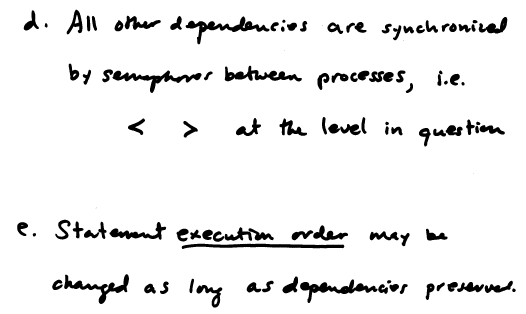 d. All other dependencies are synchronized
by semaphores between processes, i.e.
< > at the level in question
e. Statement execution order may be
changed as long as dependencies preserved.